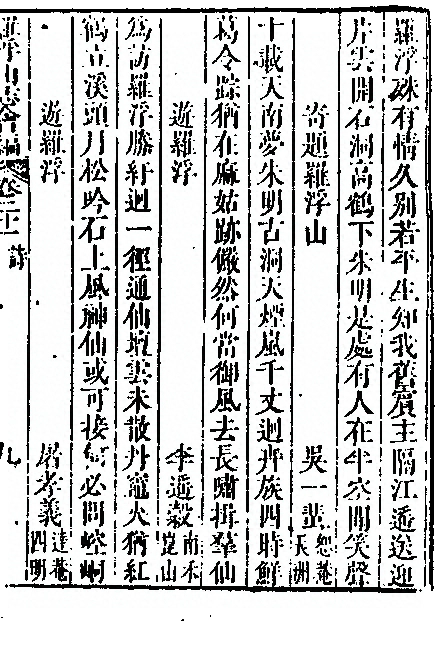 羅浮殊有情久別若平生知我舊賓主隔江遥送迎
片雲開石洞高鶴下朱明是處有人在半空聞笑聲
寄題羅浮山 吳一蜚 恕菴 長洲
十載天南夢朱明古洞天煙嵐千丈迥卉族四時鮮
葛令踪猶在麻姑跡儼然何當御風去長嘯揖羣仙
遊羅浮 李遜穀 南禾 崑山
為訪羅浮勝紆迴一徑通仙壇雲未散丹竈火猶紅
鶴立溪頭月松吟石上風神仙或可接何必問崆峒
遊羅浮 屠孝義 達菴 四明
羅浮山志會編 卷二十一 詩 九